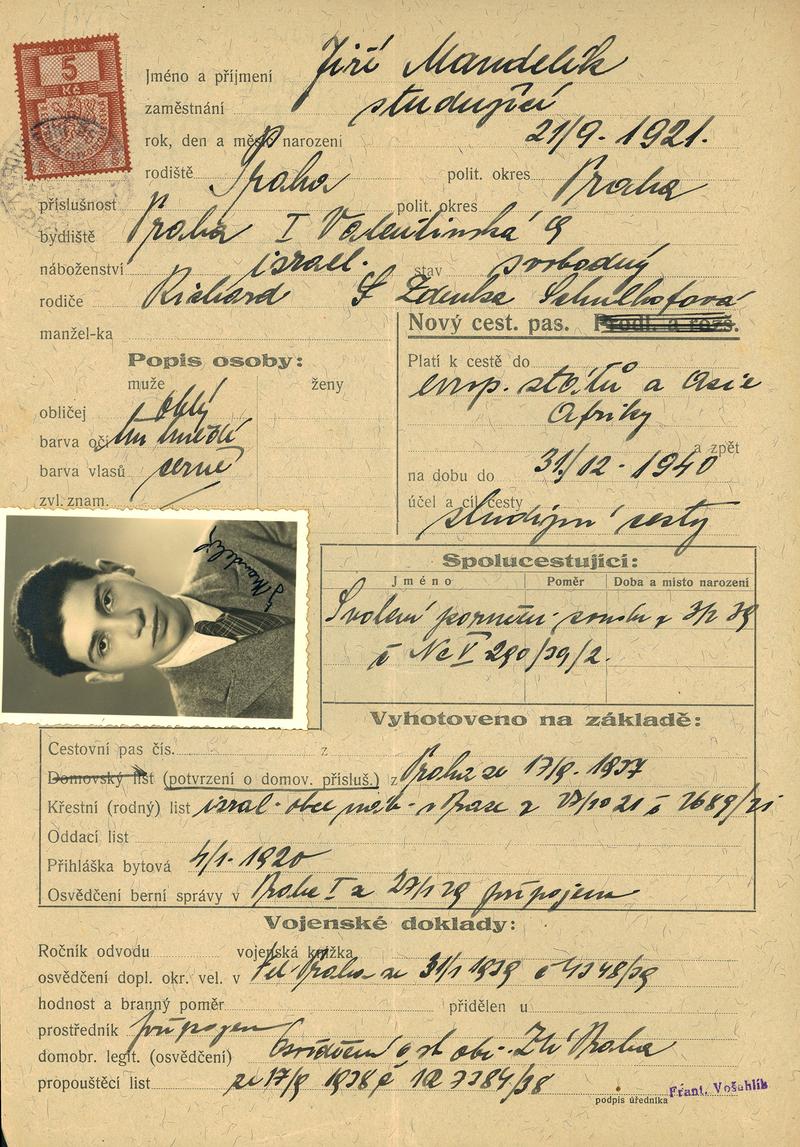 KOLEK
5
Kč
Jméno a příjmení Jiří Mandelík
zaměstnání studující
rok, den a měs. narození 21/9 - 1921.
rodiště Praha polit. okres Praha
příslušnost Praha polit. okres
bydliště I Valentinská 9
náboženství israel. stav svobodný
rodiče Richard Zdenka Schulhofová
manžel-ka
Nový cest. pas. Prodl. a rozš.
Popis osoby:
muže ženy
obličej oblý
barva očí hnědé
barva vlasů černé
zvl. znam.
Platí k cestě do
evrop. států a Asie
Afriky
a zpět
na dobu do 31/12 - 1940
účel a cíl cesty
studijní cesty
J Mandelík
Spolucestující:
Jméno Poměr Doba a místo narození
Svolení soudu z
č Nc V 290/39/2.
Vyhotoveno na základě:
Cestovní pas čís. z
Domovský list (potvrzení o domov. přísluš.) z Praha ze 17/9. 1937
Křestní (rodný) list israel. obce v Praze z 27/10 21 č 2689/21
Oddací list
Přihláška bytová 4/1 - 1920
Osvědčení berní správy v Praha I z připojeno
Vojenské doklady:
Ročník odvodu vojenská knížka
osvědčení dopl. okr. vel. v Praha ze 31/1 1939 č
hodnost a branný poměr přidělen u
prostředník připojen
domobr. legit. (osvědčení) Osvědčení o st. obč. Praha
propouštěcí list ze 17/9 1938 č
podpis úředníka Frant. Vošahlík